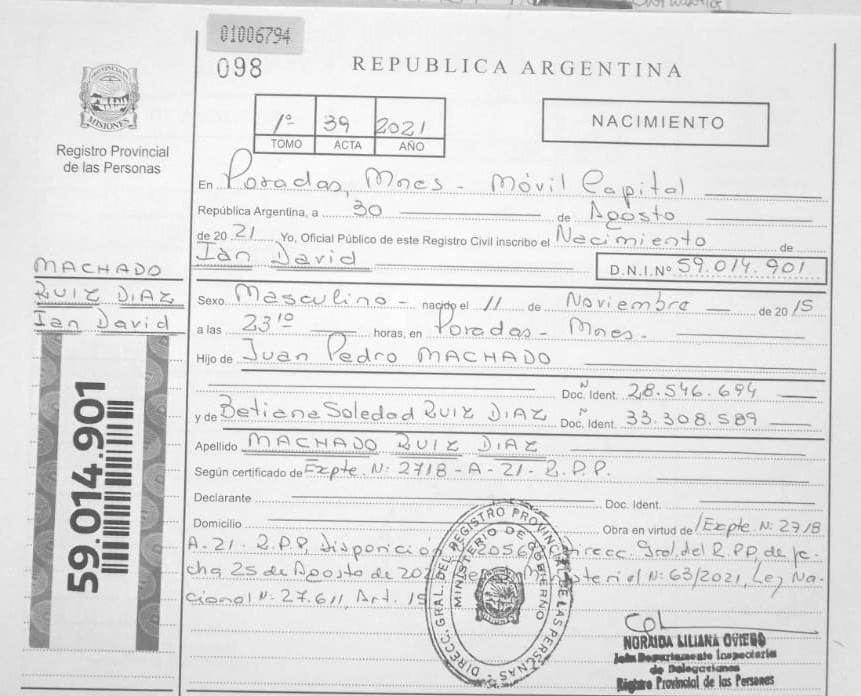 01006794
098
REPUBLICA ARGENTINA
PROVINCIA DE MISIONES
Registro Provincial
de las Personas
1º 39 2021
TOMO ACTA AÑO
NACIMIENTO
En Posadas, Mnes - Móvil Capital
República Argentina, a 30 de Agosto
de 20 21 Yo, Oficial Público de este Registro Civil inscribo el Nacimiento de
Ian David D.N.I.Nº 59.014.901
MACHADO
RUIZ DIAZ
Ian David
Sexo Masculino - nacido el 11 de Noviembre de 20 15
a las 23¹⁰ horas, en Posadas - Mnes.
Hijo de Juan Pedro MACHADO
Doc. Ident. 28.546.694
y de Betiana Soledad RUIZ DIAZ Doc. Ident. 33.308.589
Apellido MACHADO RUIZ DIAZ
Según certificado de Expte. N: 2718-A-21-R.P.P.
Declarante Doc. Ident.
Domicilio Obra en virtud de Expte. N: 2718
A-21-R.P.P, Disposición 20569 Direcc. Gral. del R.P.P, de fe-
cha 25 de Agosto de 202 Ministerial N: 63/2021, Ley Na-
cional N. 27.611, Art. 15
59.014.901
DIRECC. GRAL. DEL REGISTRO PROVINCIAL DE LAS PERSONAS
MINISTERIO DE GOBIERNO
NORAIDA LILIANA OVIEDO
Jefa Departamento Inspectoría
de Delegaciones
Registro Provincial de las Personas